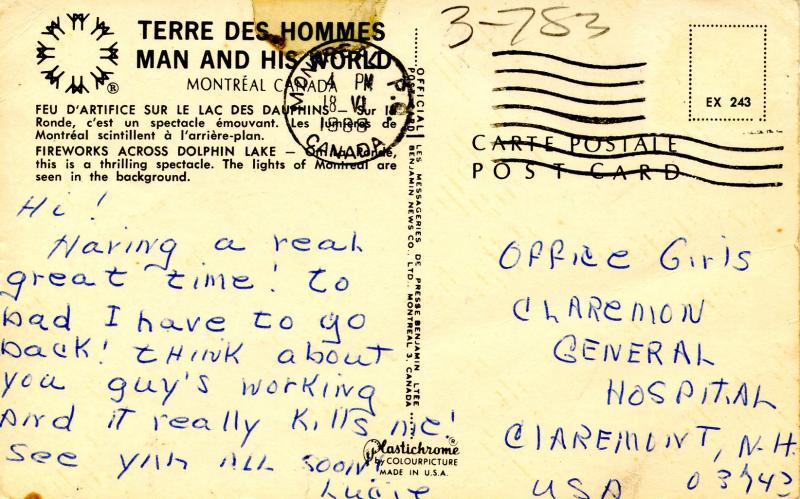 3-783
TERRE DES HOMMES
MAN AND HIS WORLD
MONTRÉAL CANADA
®
FEU D'ARTIFICE SUR LE LAC DES DAUPHINS – Sur la
Ronde, c'est un spectacle émouvant. Les lumières de
Montréal scintillent à l'arrière-plan.
FIREWORKS ACROSS DOLPHIN LAKE – On la Ronde,
this is a thrilling spectacle. The lights of Montreal are
seen in the background.
MONTREAL P.Q.
4 PM
18 VI
CANADA
Hi!
Having a real
great time! to
bad I have to go
back! think about
you guy's working
And it really kills me!
See yah all soon
Lucie
OFFICIAL LES MESSAGERIES DE PRESSE BENJAMIN LTÉE
POST CARD BENJAMIN NEWS CO. LTD. MONTREAL 3, CANADA
Plastichrome®
BY COLOURPICTURE
MADE IN U.S.A.
EX 243
CARTE POSTALE
POST CARD
Office Girls
CLAREMON
GENERAL
HOSPITAL
CLAREMONT, N.H.
USA 03743